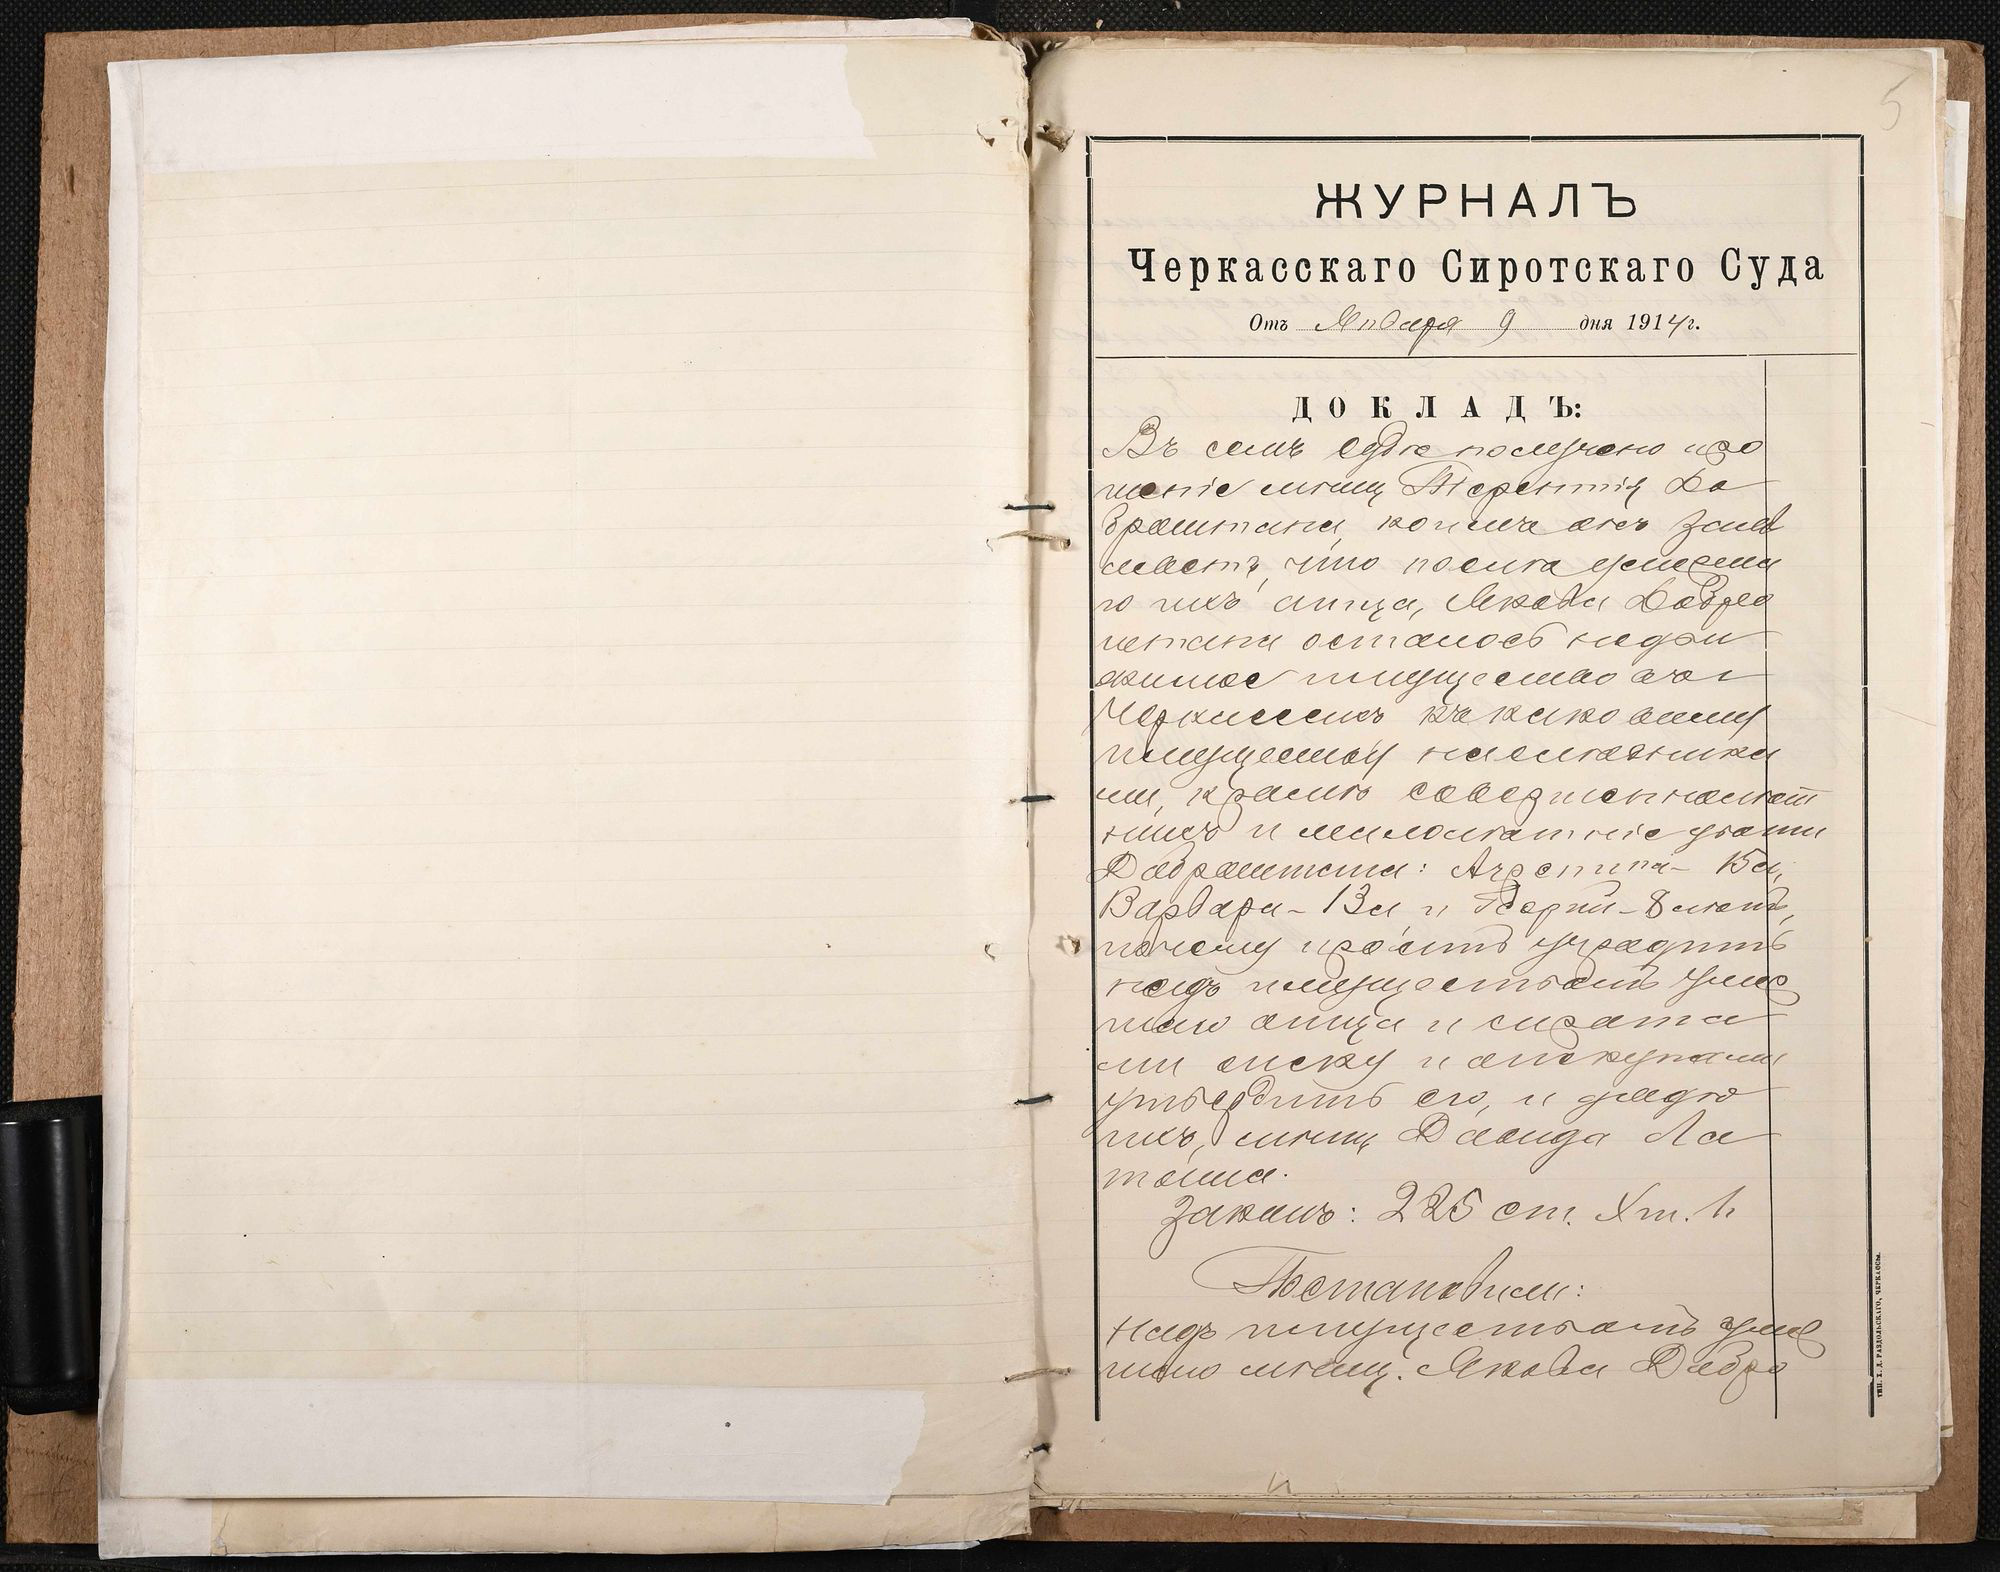 5
ЖУРНАЛЪ
Черкасскаго Сиротскаго Суда
Отъ Января 9 дня 1914 г.
ДОКЛАДЪ:
Въ семъ Судѣ получено про
шеніе мѣщ Терентія До
броштана, коимъ онъ заяв
ляетъ, что послѣ умерша
го ихъ отца, Якова Добро
штана осталось недви
жимое имущество въ г
Черкассахъ къ каковому
имуществу наслѣдника
ми, кромѣ совершеннолѣт
нихъ и малолѣтніе дѣти
Доброштана: Агрепина - 15 л,
Варвара - 13 л и Георгій - 8 лѣтъ,
почему проситъ учредить
надъ имуществомъ умер
шаго отца и сирота
ми опеку и опекунами
утвердить его, и дядю
ихъ, мѣщ Давида Ла
тыша.
Законъ: 225 ст. X т. 1 ч
Постановили:
надъ имуществомъ умер
шаго мѣщ. Якова Добро
ТИП. Х. Д. РАЗДОЛЬСКАГО, ЧЕРКАССЫ.